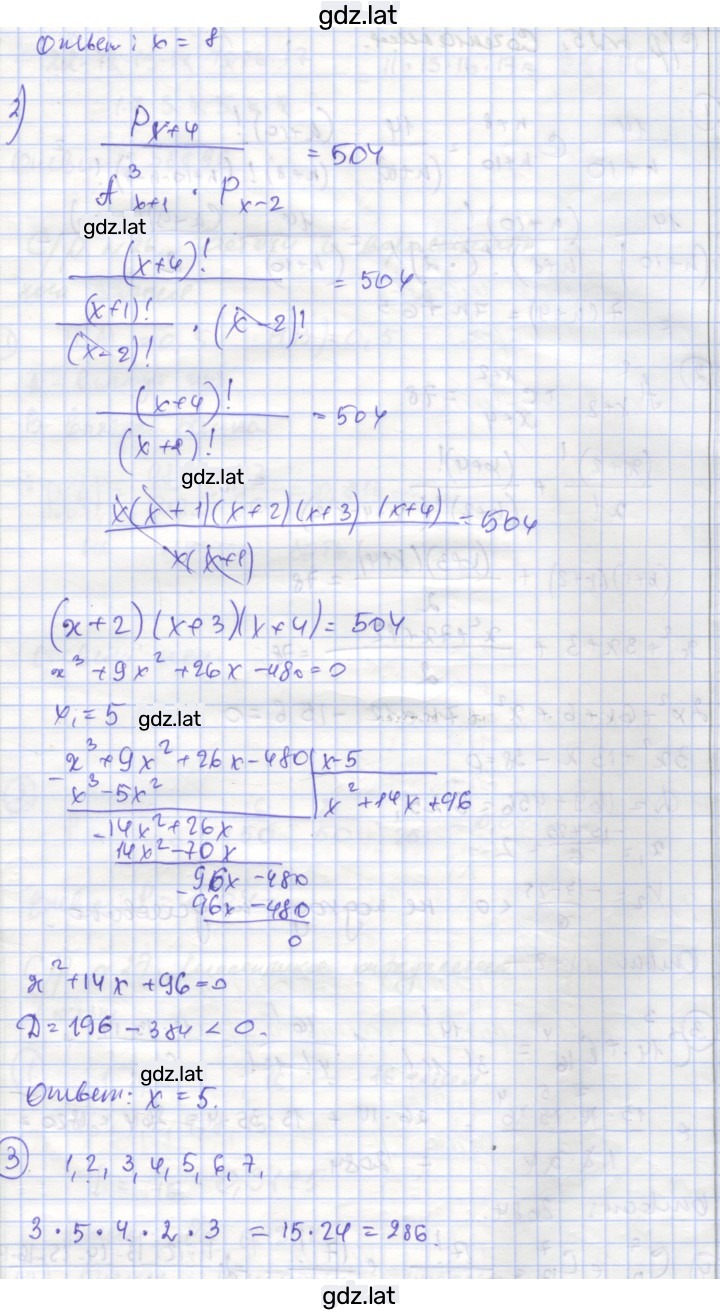 gdz.lat
Ответ: x = 8
2)
P x+4
= 504
A³ x+1 · P x-2
gdz.lat
(x+4)!
= 504
(x+1)!
· (x-2)!
(x-2)!
(x+4)!
= 504
(x+1)!
gdz.lat
x(x+1)(x+2)(x+3)(x+4) = 504
x(x+1)
(x+2)(x+3)(x+4) = 504
x³ + 9x² + 26x - 480 = 0
x₁ = 5 gdz.lat
x³ + 9x² + 26x - 480 | x-5
x³ - 5x²
x² + 14x + 96
14x² + 26x
14x² - 70x
96x - 480
96x - 480
0
x² + 14x + 96 = 0
D = 196 - 384 < 0.
gdz.lat
Ответ: x = 5.
3. 1, 2, 3, 4, 5, 6, 7,
3 · 5 · 4 · 2 · 3 = 15 · 24 = 286.
gdz.lat